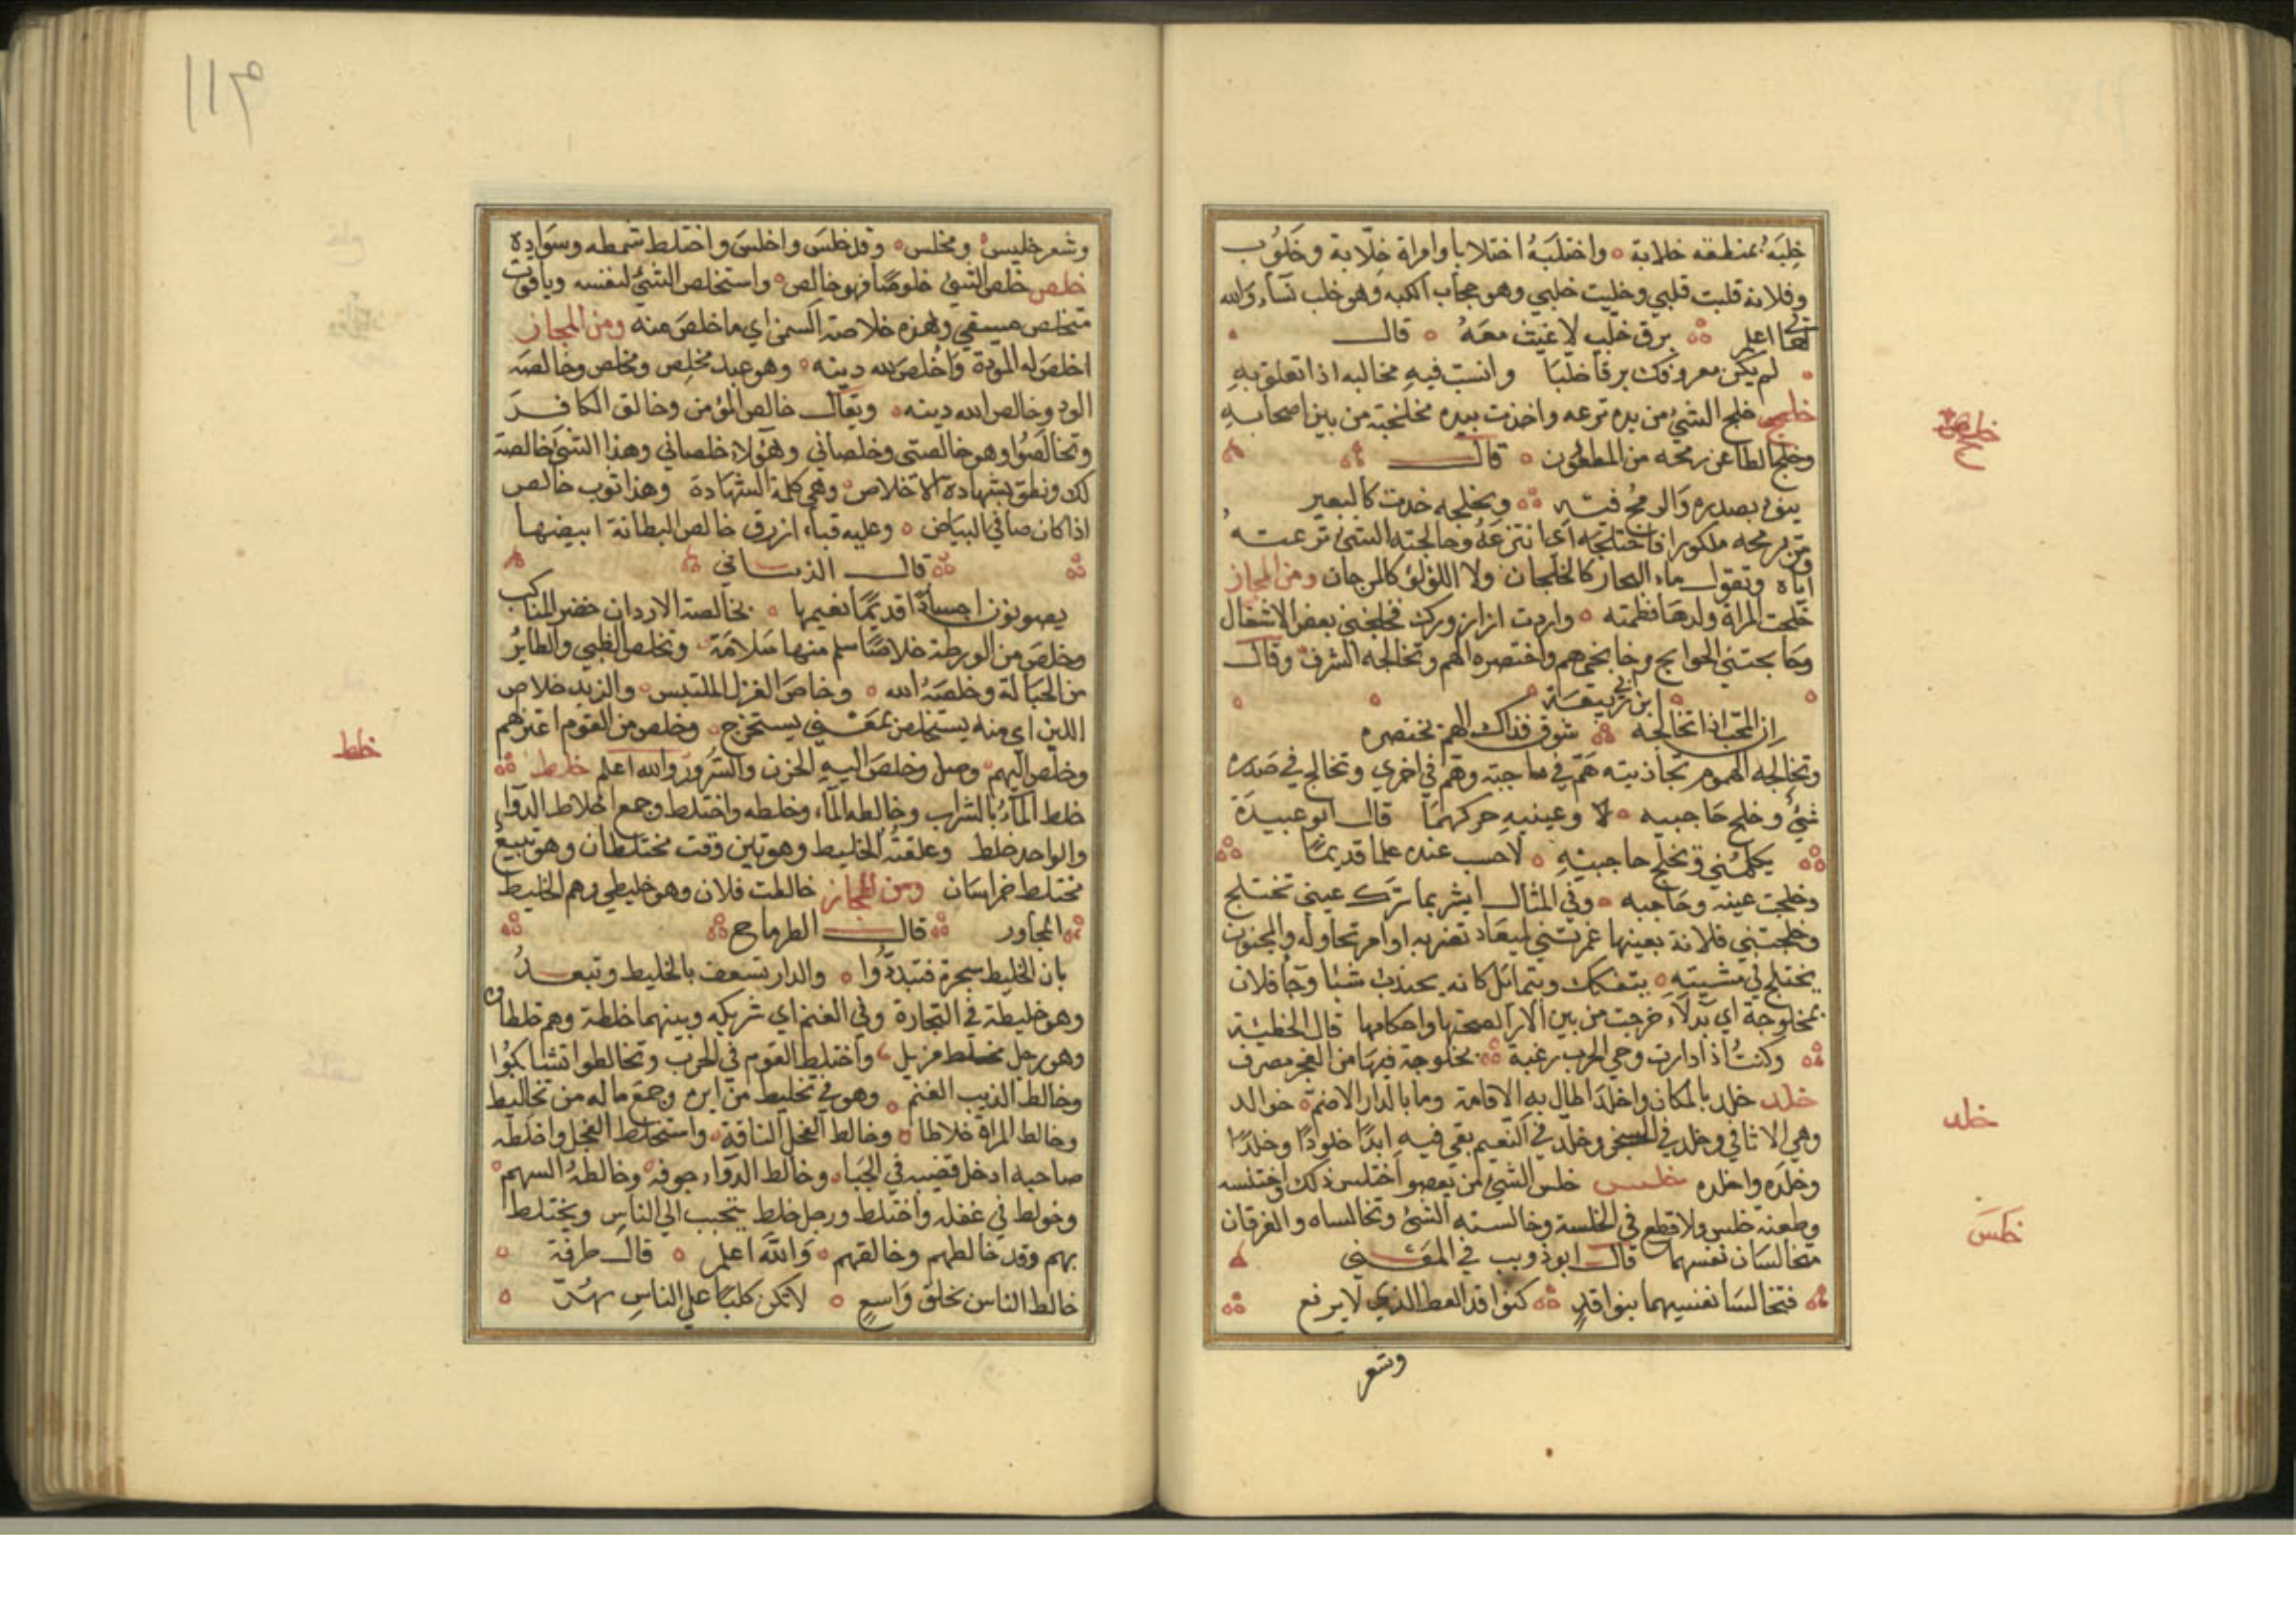 خلبَهُ بمنطقه خلابة ٥ واختلبَهُ اختلابا وامراة خِلّابة وخَلُوب
وفلانة قلبت قلبي وخلبت خلبي وهو حجاب الكبد وهو خلب نساء والله
تعالى اعلم برق خلب لا غيث معه ٥ قال
لم يكن معروفك برقا خلبا وانسب فيه مخالبه اذا تعلق به
خلج خلج الشئ من يده نزعه واخذت بيده فخلجته من بين اصحابه
وخلج الطاعن رمحه من المطعون ٥ قال
ينوء بصدره والرمح فيه ويخلجه خدب كالبعير
ومر برمحه مركوزا فاختلجه اي انتزعه وخالجته الشئ نزعته
اياه وتقول ماء البحار كالخلجان ولا اللؤلؤ كالمرجان ومن المجاز
خلجت المراة ولدها فطمته ٥ واردت ان ازورك فخلجني بعض الاشغال
وقال
ابن ربيعة
ان المحب اذا تخالجه شوق فذاك الهم تختصره
وتخالجه الهموم تجاذبته همّ في ناحية وهمّ في اخرى وتخالج في صدره
شئ وخلج حاجبيه ٥ لا وعينيه حركهما قال ابو عبيدة
يكلمني ويخلج حاجبيه ٥ لاحسب عنده علما قديما
وخلجت عينه وحاجبه ٥ وفي المثال ابشر بما ترك عيني تختلج
وخلجتني فلانة بعينها غمزتني لميعاد تضربه او امر تحاوله والمجنون
يختلج في مشيته ٥ يتفكك ويتمايل كانه يجتذب شيئا وجا فلان
بمخلوجة اي بدلاء خرجت من بين الارا لصحتها واحكامها قال الحطيئة
وكنتُ اذا دارت رحى الحرب رغبة بخلوجة فيها من العجز مصرف
خلد خلد بالمكان واخلد اطال به الاقامة وما بالدار الا ضم خوالد
وهي الاثافي وخلد في السجن وخلّد في النعيم بقي فيه ابدًا خلودًا وخلدًا
وخلده واخلده خلس خلس الشئ من يعصو اختلس ذلك واختلسه
وطعنه خلس ولا قطع في الخلسة وخالسته الشئ وتخالساه والفرقان
متخالسان نفسيهما قال ابو ذويب في المعنى
فتخالسا نفسيهما بنوافذ كنوافذ العط الذي لا يرفع
وشعر
خلج
خلد
خلس
١١٣
وشعر خليس ومخلس ٥ وقد خلس واخلس واختلط شمطه وسواده
خلص خلص الشئ خلوصًا فهو خالص ٥ واستخلص الشئ لنفسه وياقوت
متخلص مسبقي وهذه خلاصة السمن اي ما خلص منه ومن المجاز
اخلص له المودة واخلص لله دينه ٥ وهو عبد مخلِص ومخلص وخالصه
الود وخالص الله دينه ٥ ويقال خالص المؤمن وخالق الكافر
وتخالصوا وهو خالصتي وخلصاني وهؤلاء خلصاني وهذا الشئ خالصة
لك ونطق بشهادة الاخلاص ٥ وهي كلمة الشهادة وهذا ثوب خالص
اذا كان صافي البياض ٥ وعليه قباء ازرق خالص البطانة ابيضها
قال الذبياني
يصونون اجسادًا قديمًا نعيمها ٥ بخالصة الاردان خضر المناكب
وخلص من الورطة خلاصًا سلم منها سلامة ٥ وتخلص الظبي والطاير
من الحبالة وخلصه الله ٥ وخلص الغزل الملتبس ٥ والزبد خلاص
اللبن اي منه يستخلص بمعنى يستخرج ٥ وخلص من القوم اعتزلهم
وخلص اليهم ٥ وصل وخلص اليه الحزن والسرور والله اعلم خلط
خلط الماء بالشراب وخالطه الماء وخلطه واختلط وجمع اخلاط الدوا
والواحد خلط وعلقته الخليط وهو تبن وقت مختلطان وهو يبيع
مختلط خراسان ومن المجاز خالطت فلان وهو خليطي وهم الخليط
المجاور قال الطرماح
بان الخليط بسحرة فتبدّدُوا ٥ والدار تسعف بالخليط وتبعدُ
وهو خليطه في التجارة وفي الغنم اي شريكه وبينهما خلطة وهم خلطاء
وهو رجل مخلط مزيل واختلط القوم في الحرب وتخالطوا تشابكوا
وخالط الذيب الغنم ٥ وهو في تخليط من امره وجمع ماله من تخاليط
وخالط المراة خلاطا ٥ وخالط الفحل الناقة ٥ واستخلط الفحل واخلطه
صاحبه ادخل قضيبه في الحياء وخالط الدواء جوفه ٥ وخالطه السهم
وخولط في عقله واختلط ورجل خلط يتحبب الى الناس ويختلط
بهم وقد خالطهم وخالقهم ٥ والله اعلم ٥ قال طرفة
خالط الناس بخلق واسع ٥ لا تكن كلبًا على الناس تهر
خلط